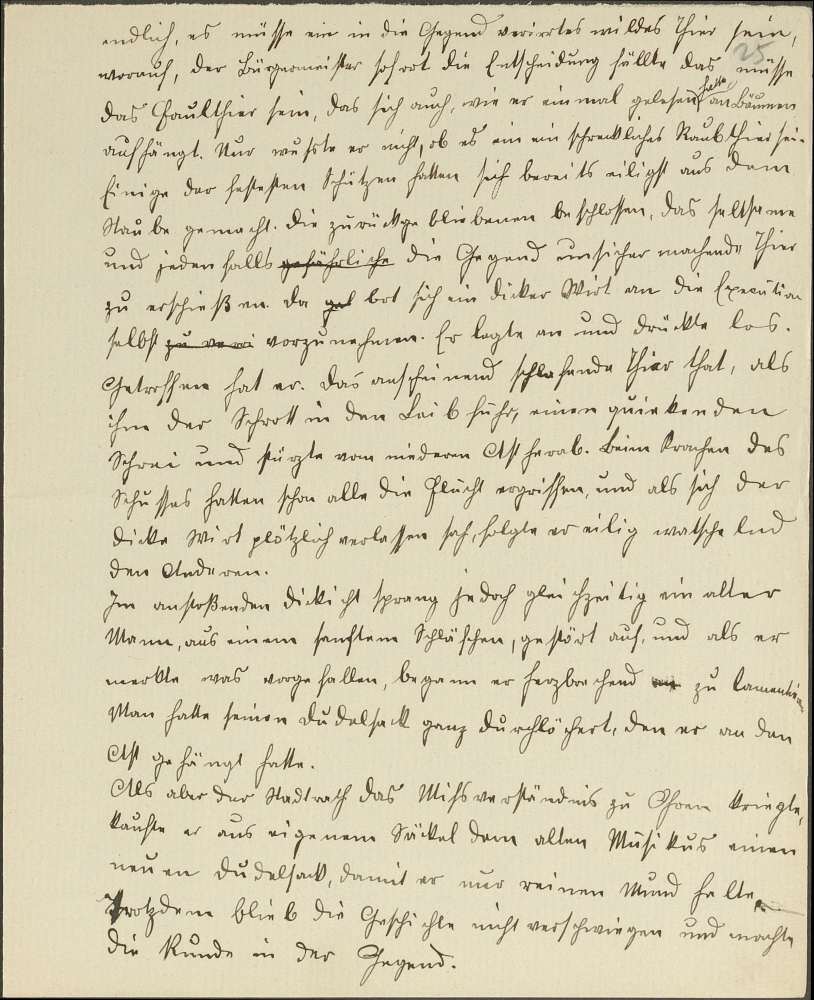 25
endlich, es müsse ein in die Gegend verirrtes wildes Thier sein,
worauf, der Bürgermeister sofort die Entscheidung fällte das müsse
das Faulthier sein, das sich auch, wie er einmal gelesen hatte, an Bäumen
aufhängt. Nur wußte er nicht, ob es ein ein schreckliches Raubthier sei.
Einige der festesten Schützen hatten sich bereits eiligst aus dem
Staube gemacht. Die zurückgebliebenen beschlossen, das seltsame
und jedenfalls gefährliche die Gegend unsicher machende Thier
zu erschießen. Da gab bot sich ein dicker Wirt an die Execution
selbst zu verri vorzunehmen. Er legte an und drückte los.
Getroffen hat er. Das anscheinend schlafende Thier that, als
ihm der Schrott in den Leib fuhr, einen quiekenden
Schrei und stürzte vom niederen Ast herab. Beim Krachen des
Schusses hatten schon alle die Flucht ergriffen, und als sich der
dicke Wirt plötzlich verlassen sah, folgte er eilig watschelnd
den Anderen.
Im anstoßenden Dickicht sprang jedoch gleichzeitig ein alter
Mann, aus einem sanftem Schläfchen, gestört auf, und als er
merkte was vorgefallen, begann er herzbrechend zu lamentiren
Man hatte seinen Dudelsack ganz durchlöchert, den er an den
Ast gehängt hatte.
Als aber der Stadtrath das Mißverständnis zu Ohren kriegte,
kaufte er aus eigenem Säckel dem alten Musikus einen
neuen Dudelsack, damit er nur reinen Mund halte.
Trotzdem blieb die Geschichte nicht verschwiegen und machte
die Runde in der Gegend.